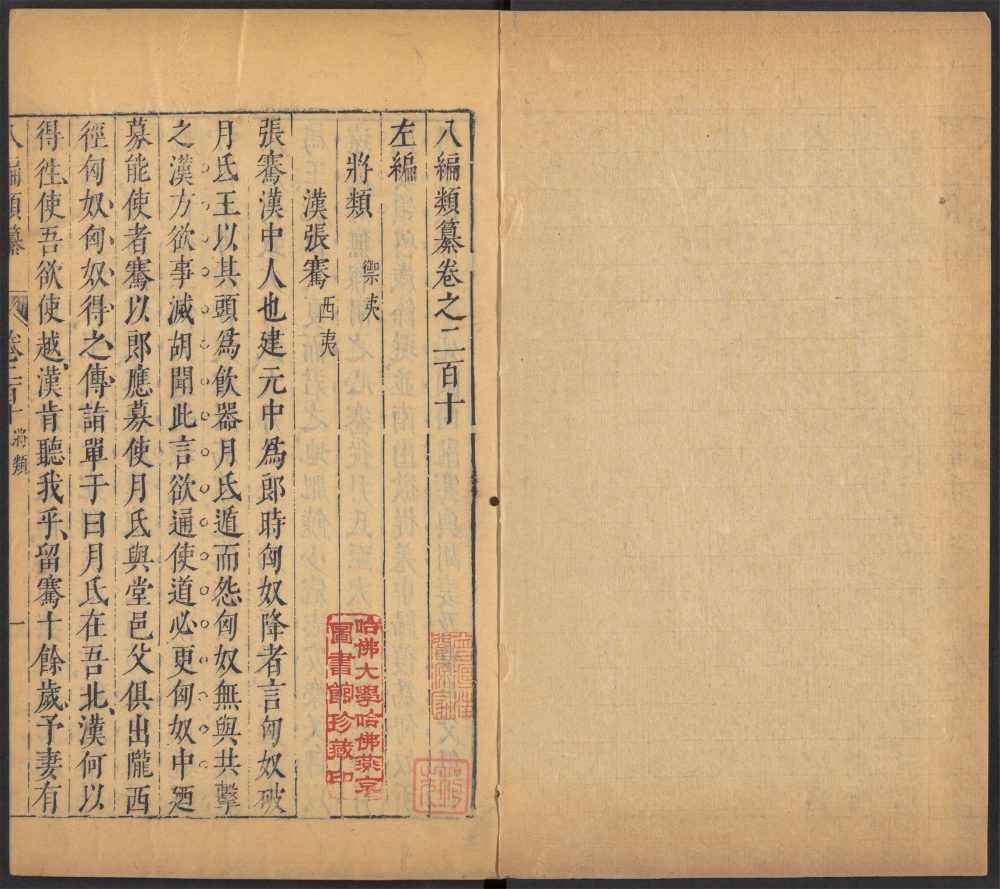 八編類纂卷之二百十
左編
將類 禦夷
漢張騫 西夷
張騫漢中人也建元中爲郎時匈奴降者言匈奴破
月氏王以其頭爲飮器月氏遁而怨匈奴無與共擊
之漢方欲事滅胡聞此言欲通使道必更匈奴中廼
募能使者騫以郎應募使月氏與堂邑父俱出隴西
徑匈奴匈奴得之傳詣單于曰月氏在吾北漢何以
得徃使吾欲使越漢肯聽我乎留騫十餘歲予妻有
八編類纂 卷之二百十 將類 一
哈佛大學哈佛燕京
圖書館珍藏印